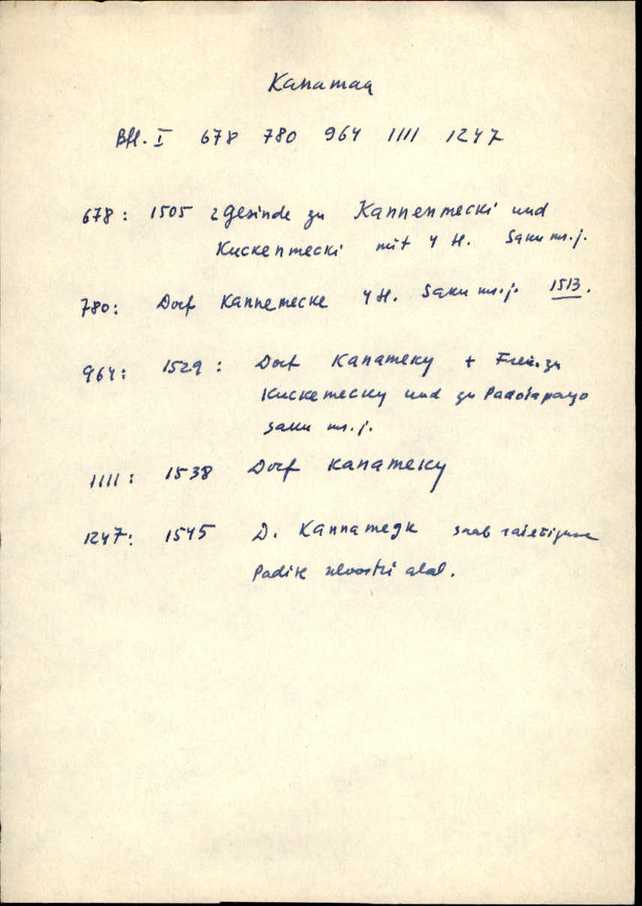 Kanamaa
Bfl. I 678 780 964 1111 1247
678: 1505 2 Gesinde zu Kannenmecki und
Kuckenmecki mit 4 H. Saku ms. j.
780: Dorf Kannemecke 4 H. Saku ms. j. 1513.
964: 1529: Dorf Kanameky + zu
Kuckemecky und zu
Saku ms. j.
1111: 1538 Dorf Kanameky
1247: 1545 D. Kannamegk saab
Padise kloostri alal.